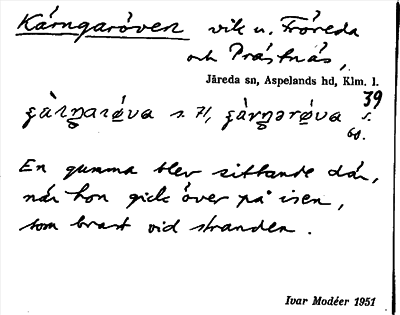 Kärngaröven vik u. Fröreda
och Prästnäs,
Järeda sn, Aspelands hd, Klm. l.
39
s. 71, s.
60.
En gumma blev sittande där,
när hon gick över på isen,
som brast vid stranden.
Ivar Modéer 1951